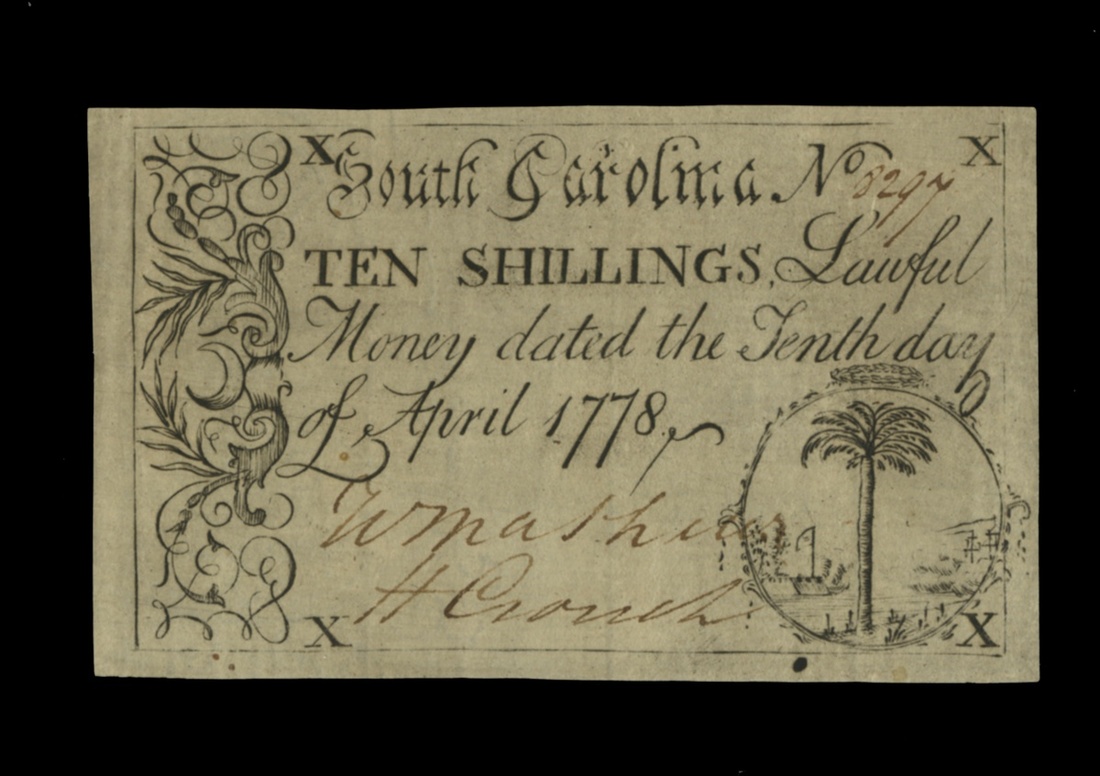 X South Carolina No 8297 X
TEN SHILLINGS, Lawful
Money dated the Tenth day
of April 1778
H Crouch
X X